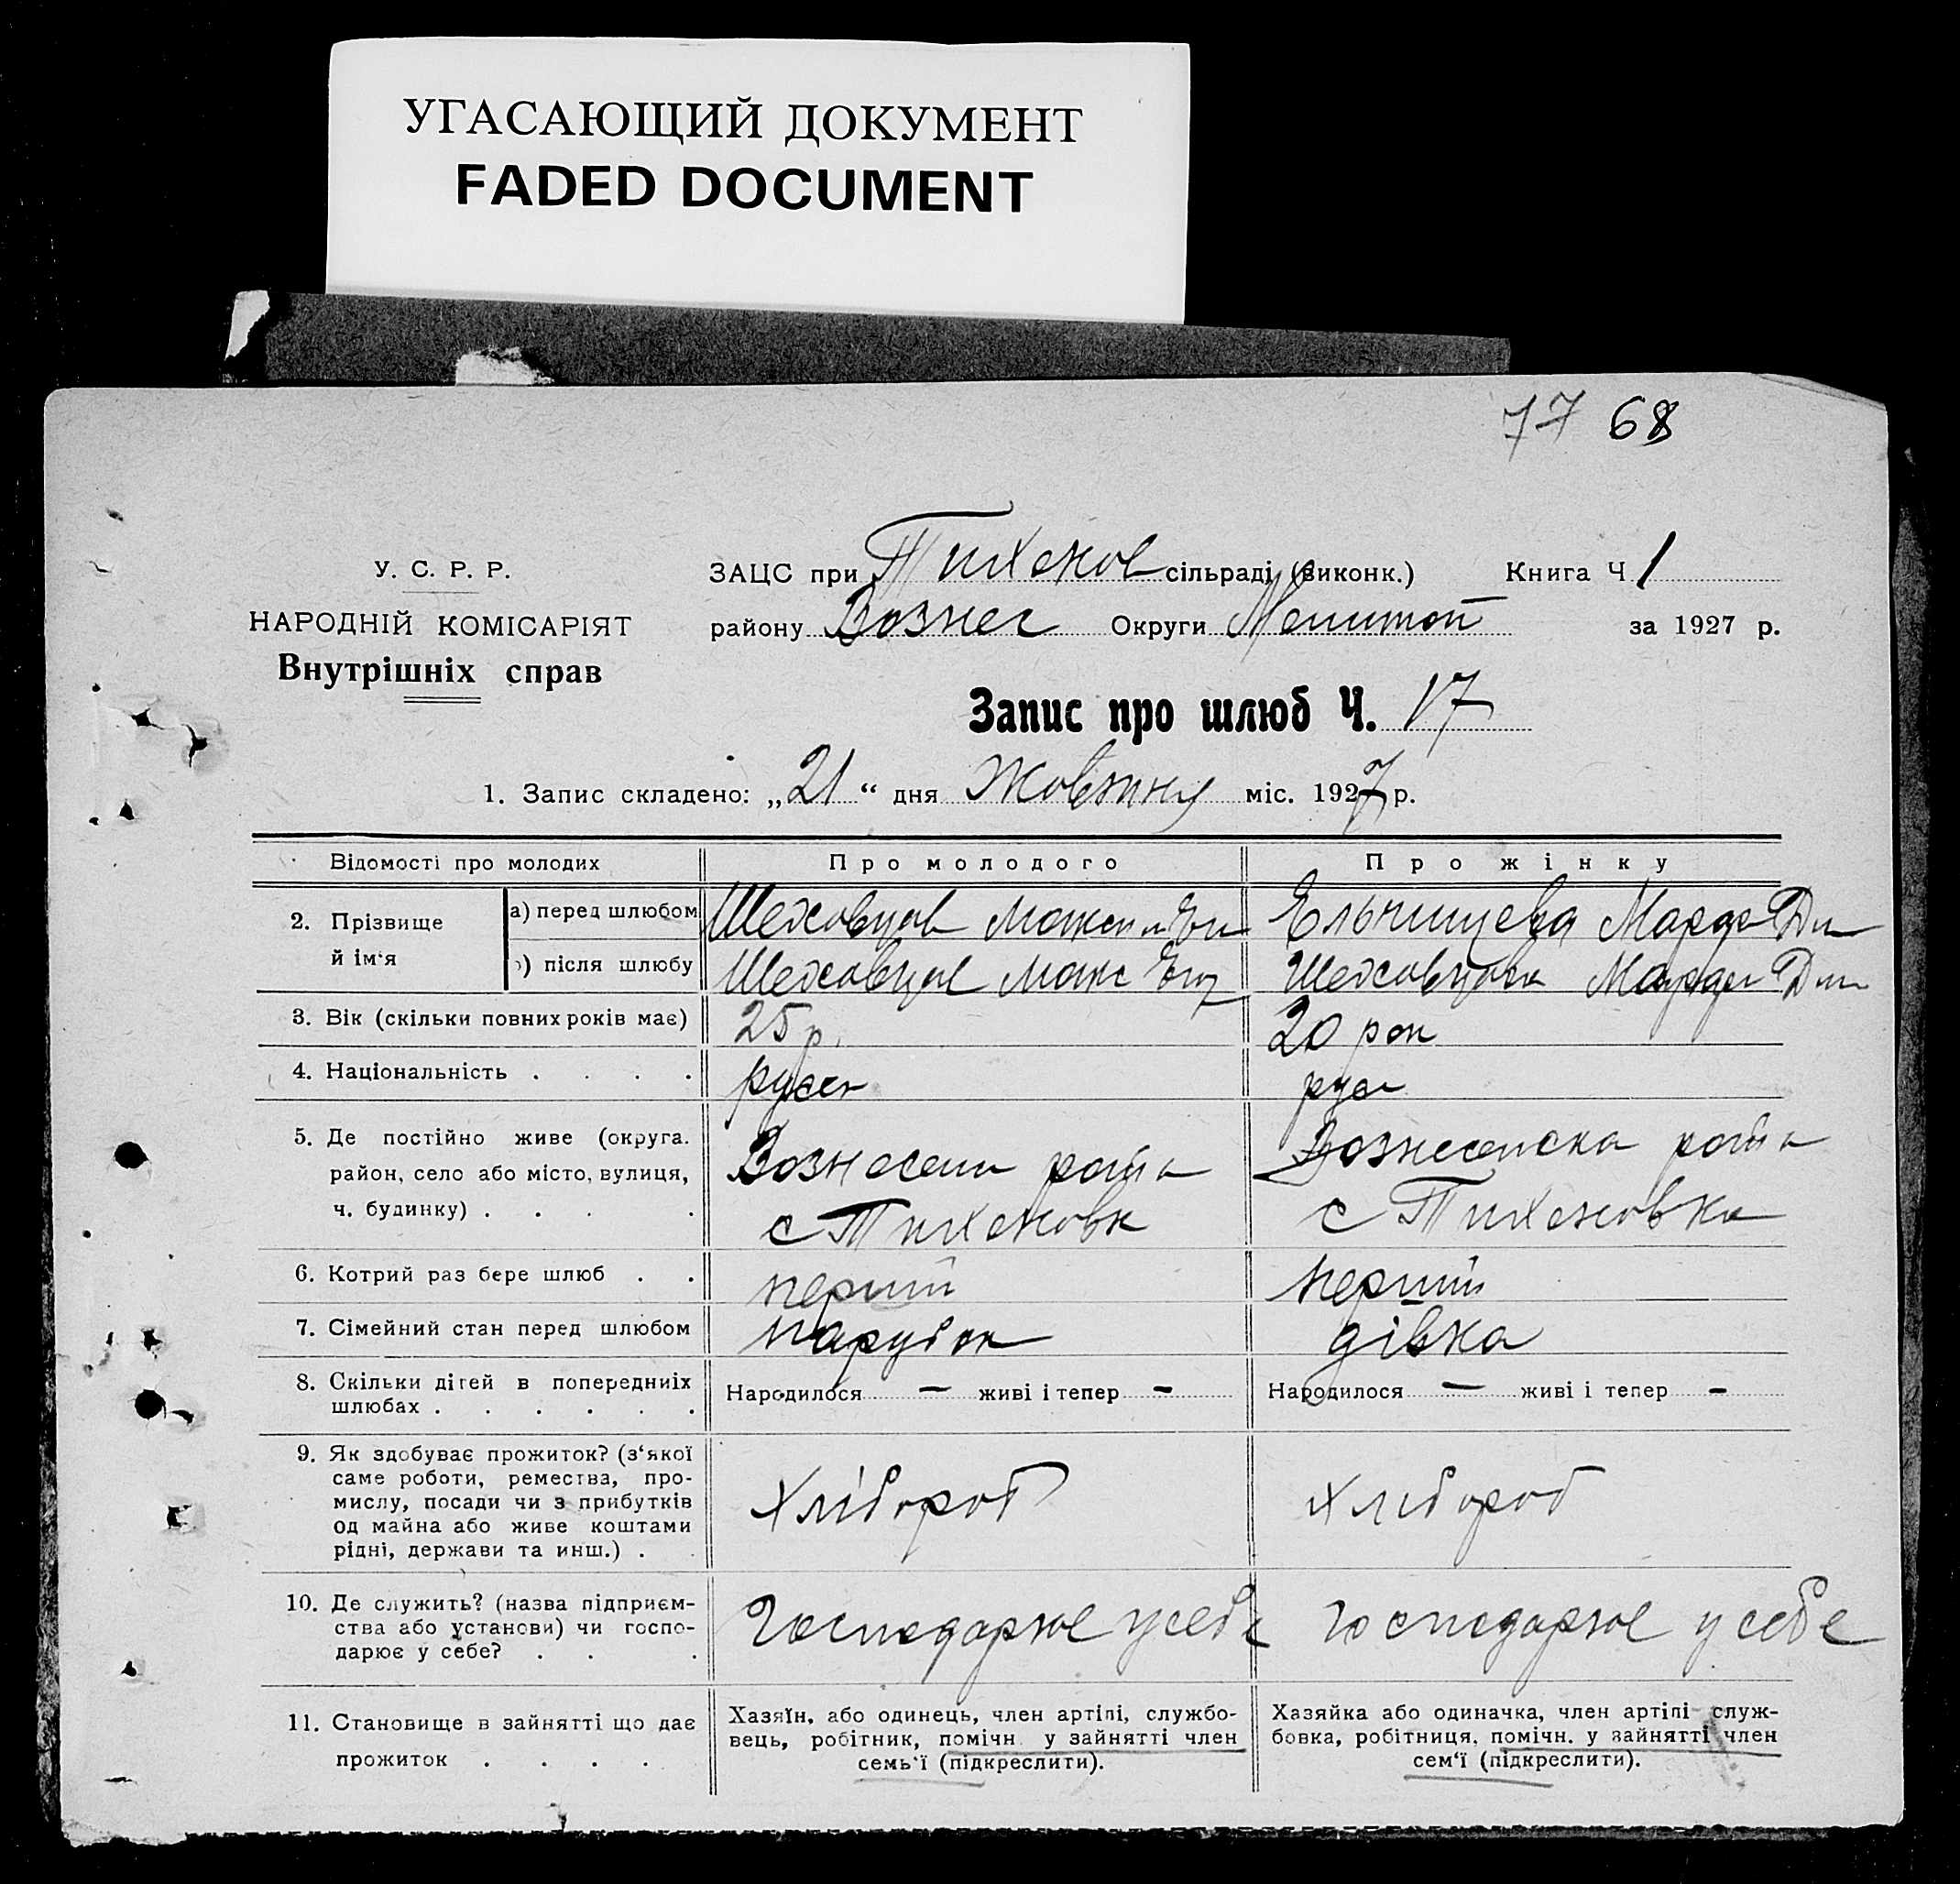 УГАСАЮЩИЙ ДОКУМЕНТ
FADED DOCUMENT
77 68
У. С. Р. Р.
НАРОДНІЙ КОМІСАРІЯТ
Внутрішніх справ
ЗАЦС при Тихонов сільраді (виконк.) Книга Ч 1
району Вознес Округи Мелитоп за 1927 р.
Запис про шлюб Ч. 17
1. Запис складено: „21“ дня Жовтня міс. 1927 р.
Відомості про молодих Про молодого Про жінку
2. Прізвище й ім‘я
а) перед шлюбом Шеховцов Ельчищева Марфа
б) після шлюбу Шеховцов Макс Шеховцова Марфа
3. Вік (скільки повних років має) 25 р. 20 рок
4. Національність . . . . руськ рус
5. Де постійно живе (округа. Вознесен район Вознесенска район
район, село або місто, вулиця, с Тихоновк с Тихоновка
ч. будинку) . . . .
6. Котрий раз бере шлюб . . перший перший
7. Сімейний стан перед шлюбом парубок дівка
8. Скільки дітей в попередниіх Народилося — живі і тепер — Народилося — живі і тепер —
шлюбах . . . . . .
9. Як здобуває прожиток? (з‘якої
саме роботи, ремества, про-
мислу, посади чи з прибутків Хлібороб Хлібороб
од майна або живе коштами
рідні, держави та инш.) .
10. Де служить? (назва підприєм-
ства або установи) чи госпо- Господарює у себе господарює у себе
дарює у себе? . . .
11. Становище в зайнятті що дає
прожиток . . . .
Хазяїн, або одинець, член артілі, службо-
вець, робітник, помічн. у зайнятті член
семь‘ї (підкреслити).
Хазяйка або одиначка, член артілі служ-
бовка, робітниця, помічн. у зайнятті член
сем‘ї (підкреслити).